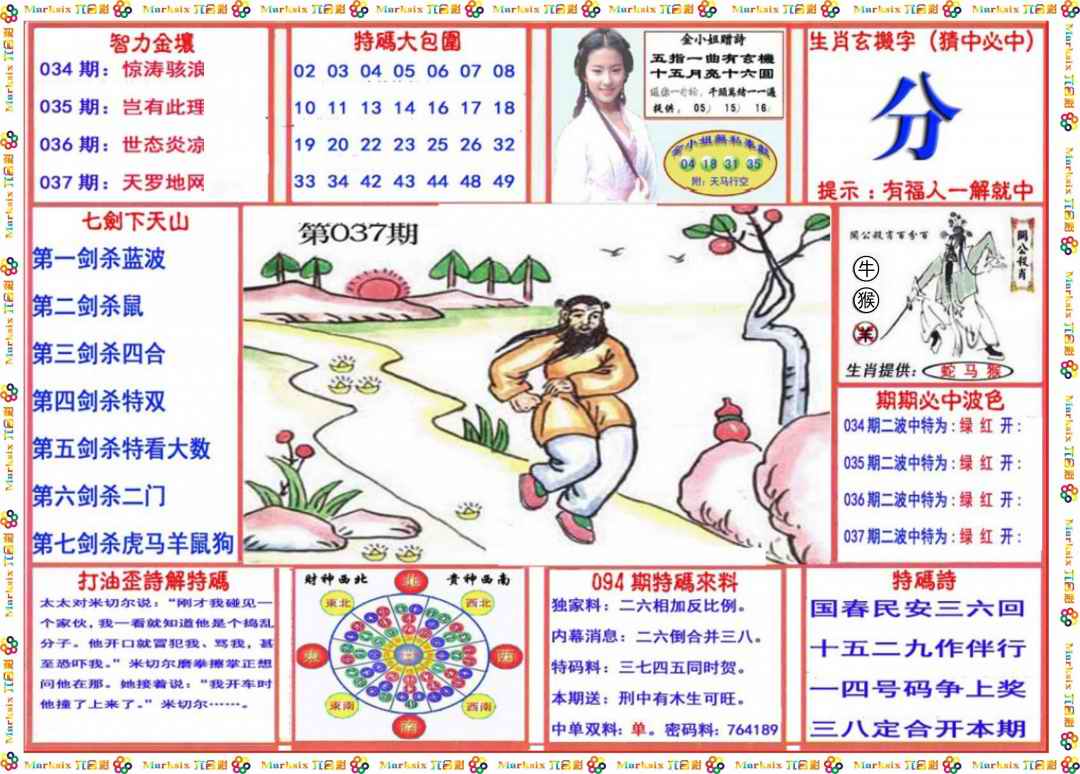 智力金壤
034 期：惊涛骇浪
035 期：岂有此理
036 期：世态炎凉
037 期：天罗地网
特碼大包圍
02 03 04 05 06 07 08
10 11 13 14 16 17 18
19 20 22 23 25 26 32
33 34 42 43 44 48 49
金小姐贈詩
五指一曲有玄機
十五月亮十六圆
千頭萬緒一一通
提供： 05/ 15/ 16/
04 18 31 35
附：天马行空
生肖玄機字（猜中必中）
分
提示：有福人一解就中
七劍下天山
第一剑杀蓝波
第二剑杀鼠
第三剑杀四合
第四剑杀特双
第五剑杀特看大数
第六剑杀二门
第七剑杀虎马羊鼠狗
第037期
關公殺肖百分百
關公殺肖
牛
猴
羊
生肖提供：蛇 马 猴
期期必中波色
034期二波中特为：绿 红 开：
035期二波中特为：绿 红 开：
036期二波中特为：绿 红 开：
037期二波中特为：绿 红 开：
打油歪詩解特碼
太太对米切尔说：“刚才我碰见一
个家伙，我一看就知道他是个捣乱
分子。他开口就冒犯我、骂我，甚
至恐吓我。”米切尔磨拳擦掌正想
问他在那。她接着说：“我开车时
他撞了上来了。”米切尔……。
財神西北
貴神西南
北
東北
西北
東
西
東南
西南
南
094 期特碼來料
独家料：二六相加反比例。
内幕消息：二六倒合并三八。
特码料：三七四五同时贺。
本期送：刑中有木生可旺。
中单双料：单。密码料：764189
特碼詩
国春民安三六回
十五二九作伴行
一四号码争上奖
三八定合开本期